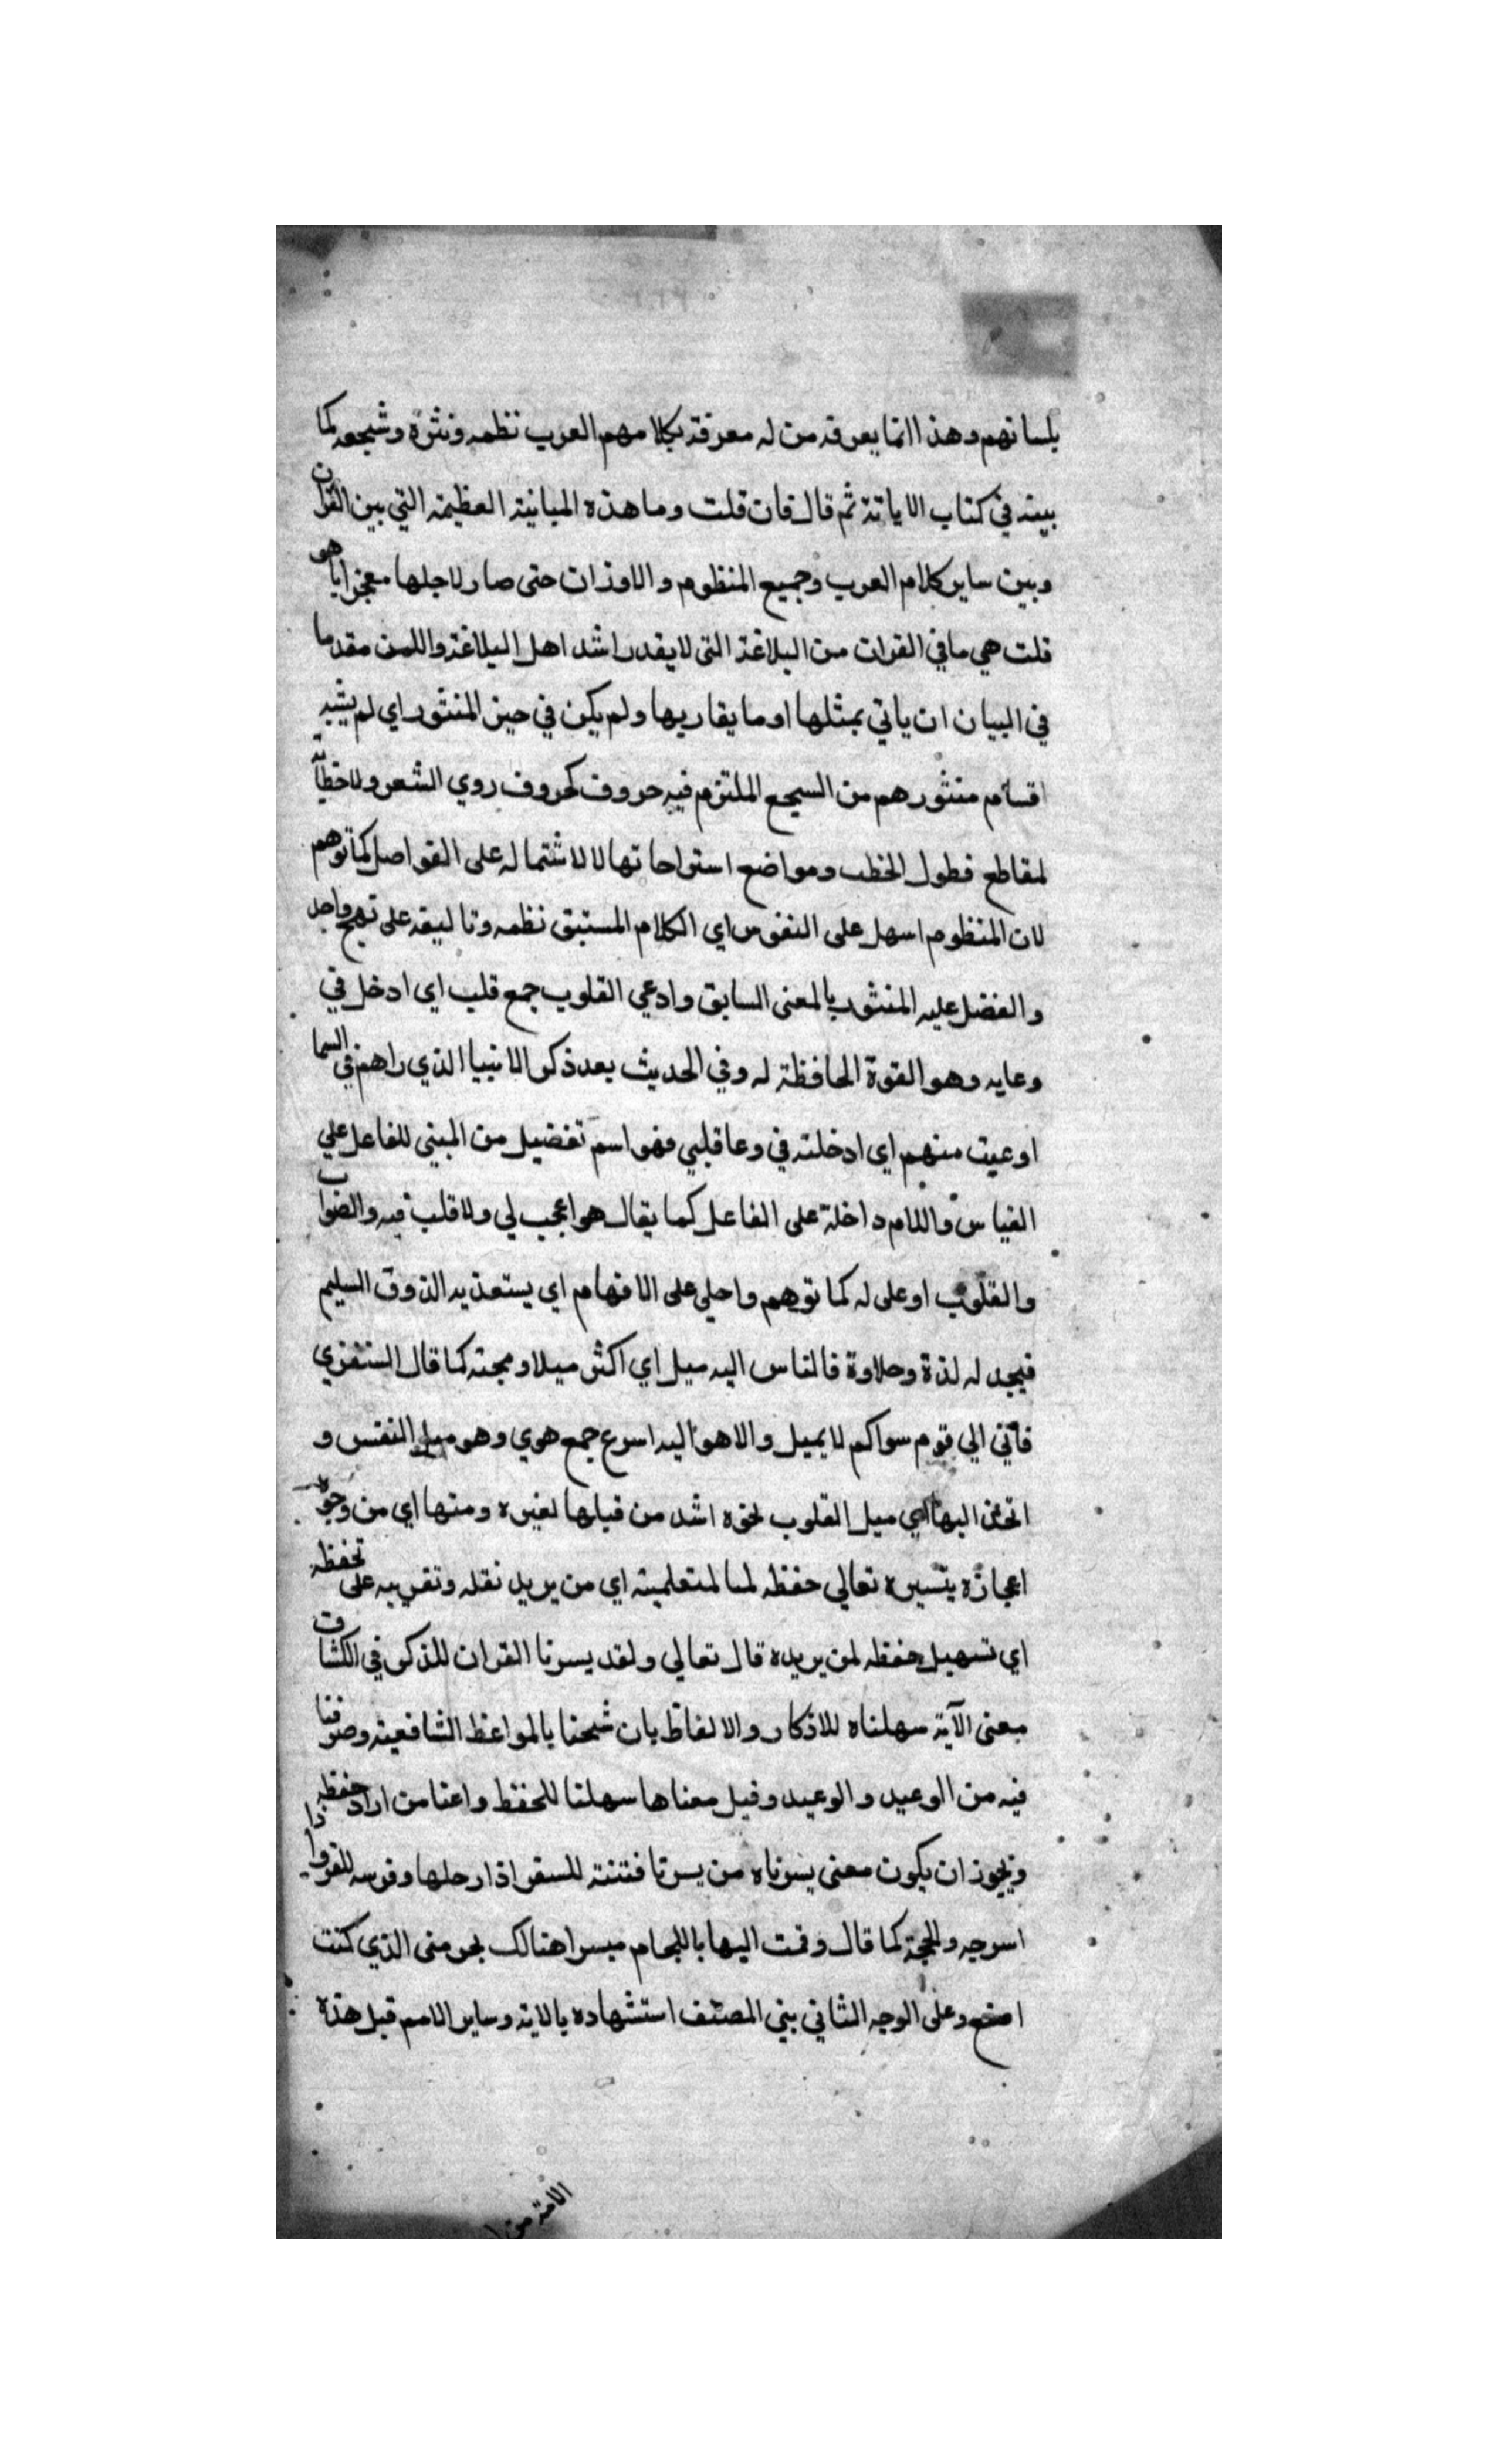 بلسانهم وهذا انما يعرفه من له معرفة بكلامهم العرب نظمه ونثره وشجعه كما
بينه في كتاب الاياتة ثم قال فان قلت وما هذه المباينة العظيمة التي بين القران
وبين ساير كلام العرب وجميع المنظوم والاوزان حتى صار لاجلها معجزا ياهو
قلت هي ما في القران من البلاغة التي لا يقدر اشد اهل البلاغة واللسن مقدما
في البيان ان ياتي بمثلها او ما يقاربها ولم يكن في حيز المنثور اي لم يشبه
اقسام منثورهم من السجع الملتزم فيه حروف كحروف روي الشعر ولا خطابة
لمقاطع فطول الخطب ومواضع استراحاتها لا لاشتماله على الفواصل كما توهم
لان المنظوم اسهل على النفوس اي الكلام المستبق نظمه وتاليفه على نهج واحد
والفضل عليه المنثور بالمعنى السابق وادعي القلوب جمع قلب اي ادخل في
وعايه وهو القوة الحافظة له وفي الحديث بعد ذكر الانبيا الذي راهم في السما
اوعيت منهم اي ادخلته في وعا قلبي فهو اسم تفضيل من المبني للفاعل علي
القياس واللام داخلة على الفاعل كما يقال هو اعجب لي ولا قلب فيه والصواب
والقلوب اوعلى له كما توهم واحلى على الافهام اي يستعذبه الذوق السليم
فيجد له لذة وحلاوة فالناس اليه ميل اي اكثر ميلا ومحبة كما قال الشنفري
فاني الي قوم سواكم لا يميل والاهوا اليه اسرع جمع هوي وهو ميل النفس و
اليها اي ميل القلوب نحوه اشد من قبلها لغيره ومنها اي من وجوه
اعجازه يتسيره تعالي حفظه لمتعلميه اي من يريد نقله وتقريبه على تحفظه
اي تسهيل حفظه لمن يريده قال تعالي ولقد يسرنا القران للذكر في الكشاف
معنى الآية سهلناه للاذكار والالفاظ بان شحنا بالمواعظ الشافعية وصرفنا
فيه من الوعيد والوعيد وقيل معناها سهلنا للحفظ واعنا من اراد حفظه
ويجوز ان يكون معنى يسرناه من يسرنا فتنته للسفر اذا رحلها وفرسه للغزو اذا
اسرجه ولجمة كما قال وقمت اليها باللجام ميسرا هنالك يجزمني الذي كنت
اصنع وعلى الوجه الثاني بني المصنف استشهاده بالاية وساير الامم قبل هذه
الامة من